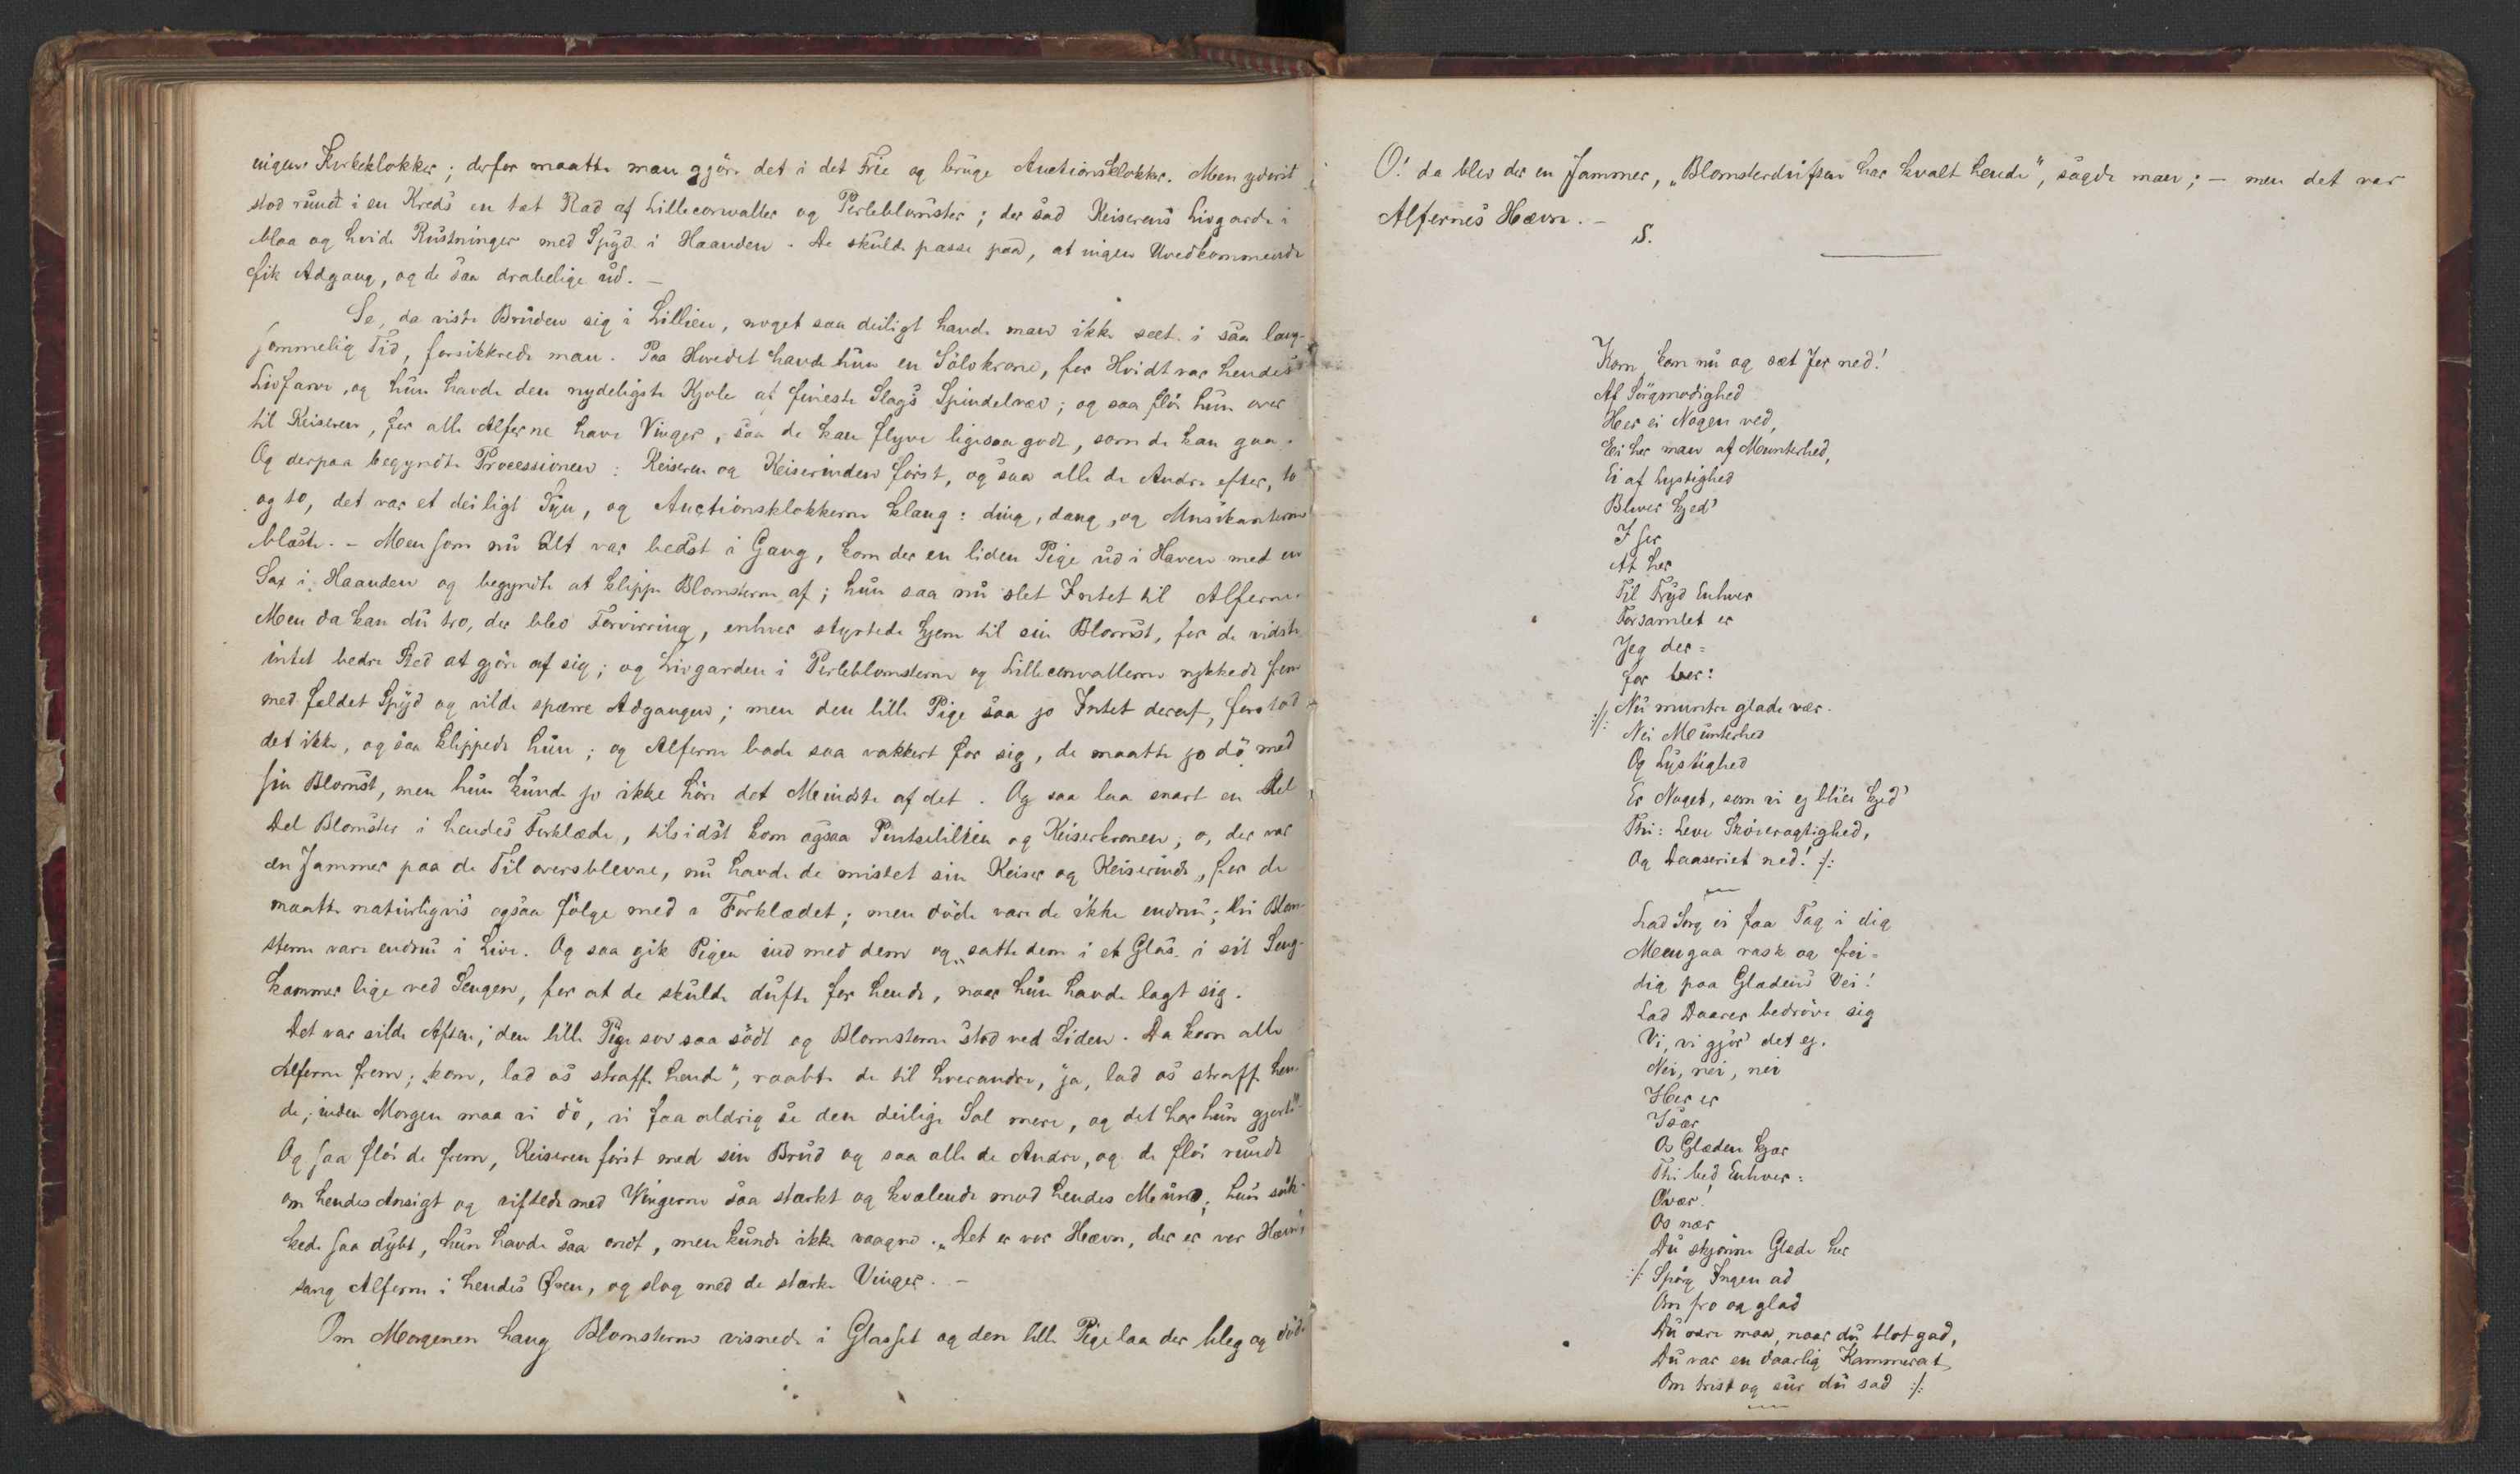 ingen Kirkeklokker; derfor maatte man gjöre det i det Frie og bruge Auctionsklokker. Men yderst
stod rundt i en Kreds en tæt Rad af Lilleconvaller og Perleblomster; der sad Keiserens Livgarde i
blaa og hvide Rustninger med Spyd i Haanden. De skulde passe paa, at ingen Uvedkommende
fik Adgang, og de saa drabelige ud. —
Se, da viste Bruden sig i Lillien, noget saa deiligt havde man ikke seet i saa lang-
sommelig Tid, forsikkrede man. Paa Hovedet havde hun en Sölvkrone, for Hvidt var hendes
Livfarve, og hun havde den nydeligste Kjole af fineste Slags Spindelvæv; og saa flöi hun over
til Keiseren, for alle Alferne have Vinger, saa de kan flyve ligesaa godt, som de kan gaa.
Og derpaa begyndte Processionen: Keiseren og Keiserinden först, og saa alle de Andre efter, to
og to, det var et deiligt Syn, og Auctionsklokkerne klang: ding, dang, og Musikanterne
blæste. - Men som nu Alt var bedst i Gang, kom der en liden Pige ud i Haven med en
Sax i Haanden og begyndte at klippe Blomsterne af; hun saa nu slet Intet til Alferne.
Men da kan du tro, der blev Forvirring, enhver styrtede hjem til sin Blomst, for de vidste
intet bedre Sted at gjöre af sig; og Livgarden i Perleblomsterne og Lilleconvallerne rykkede frem
med fældet Spyd og vilde spærre Adgangen; men den lille Pige saa jo Intet deraf, forstod
det ikke, og saa klippede hun; og Alferne bade saa vakkert for sig, de maatte jo dö med
sin Blomst, men hun kunde jo ikke höre det Mindste af det. Og saa laa snart en Del
Del Blomster i hendes Forklæde, tilsidst kom ogsaa Pintselilien og Keiserkronen, o, der var
en Jammer paa de Tiloversblevne, nu havde de mistet sin Keiser og Keiserinde, for de
maatte naturligvis ogsaa fölge med i Forklædet; men döde vare de ikke endnu; thi Blom-
sterne vare endnu i Live. Og saa gik Pigen ind med dem og satte dem i et Glas i sit Seng-
kammer lige ved Sengen, for at de skulde dufte for hende, naar hun havde lagt sig.
Det var silde Aften; den lille Pige sov saa södt og Blomsterne stod ved Siden. Da kom alle
Alferne frem; „kom, lad os straffe hende", raabte de til hverandre, "ja, lad os straffe hen-
de; inden Morgen maa vi dö, vi faa aldrig se den deilige Sol mere, og det har hun gjort"-
Og saa flöi de frem, Keiseren först med sin Brud og saa alle de Andre, og de flöi rundt
om hendes Ansigt og viftede med Vingerne saa stærkt og kvælende mod hendes Mund; hun suk-
kede saa dybt, hun havde saa ondt, men kunde ikke vaagne. „Det er vor Hævn, der er vor Hævn"
sang Alferne i hendes Øren, og slog med de stærke Vinger. —
Om Morgenen hang Blomsterne visnede i Glasset og den lille Pige laa der bleg og död.
O! da blev der en Jammer, „Blomsterduften har kvalt hende", sagde man; — men det var
Alfernes Hævn. —
S.
Kom, kom nu og sæt Jer ned!
Af Sörgmodighed
Her ei Nogen ved,
Ei her man af Munterhed,
Ei af Lystighed
Bliver kjed'
I ser
At her
Til Fryd Enhver
Forsamlet er
Jeg der=
for ber:
:/: Nu muntre glade vær.
Nei Munterhed
Og Lystighed
Er Noget, som vi ej bli'er kjed'
Thi: Leve Sköieragtighed,
Og Daaseriet ned! :/:
Lad Sorg ei faa Tag i dig
Men gaa rask og frei=
dig paa Glædens Vei!
Lad Daarer bedröve sig
Vi, vi gjör' det ej.
Nei, nei, nei
Her er
Især
Os Glæden kjær
Thi bed Enhver:
O vær!
Os nær
Du skjönne Glæde her
:/: Spörg Ingen ad
Om fro og glad
Du være maa, naar du blot gad,
Du var en daarlig Kammerat,
Om trist og sur du sad :/: